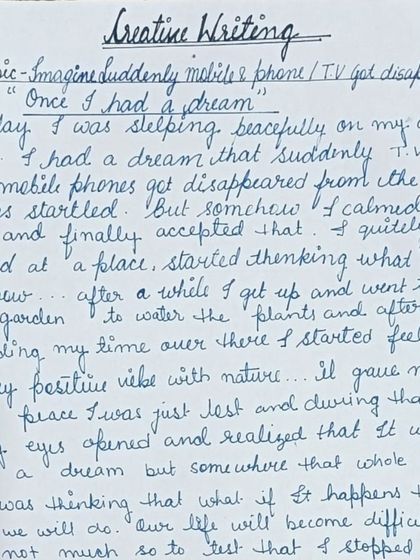 Creative Writing
ic - Imagine Suddenly mobile & phone / T.V got disap
"Once I had a dream"
day I was sleeping peacefully on my
I had a dream that suddenly T.V
mobile phones got disappeared from the
s startled. But somehow I calmed
and finally accepted that. I quitely
d at a place, started thenking what
ow... after a while I get up and went
garden to water the plants and after
ing my time over there I started feel
y positive vibe with nature... it gave m
peace I was just lost and during tha
eyes opened and realized that It w
a dream but somewhere that whole
was thinking that what if It happens t
we will do. Our life will become difficu
not much so to test that I stopped